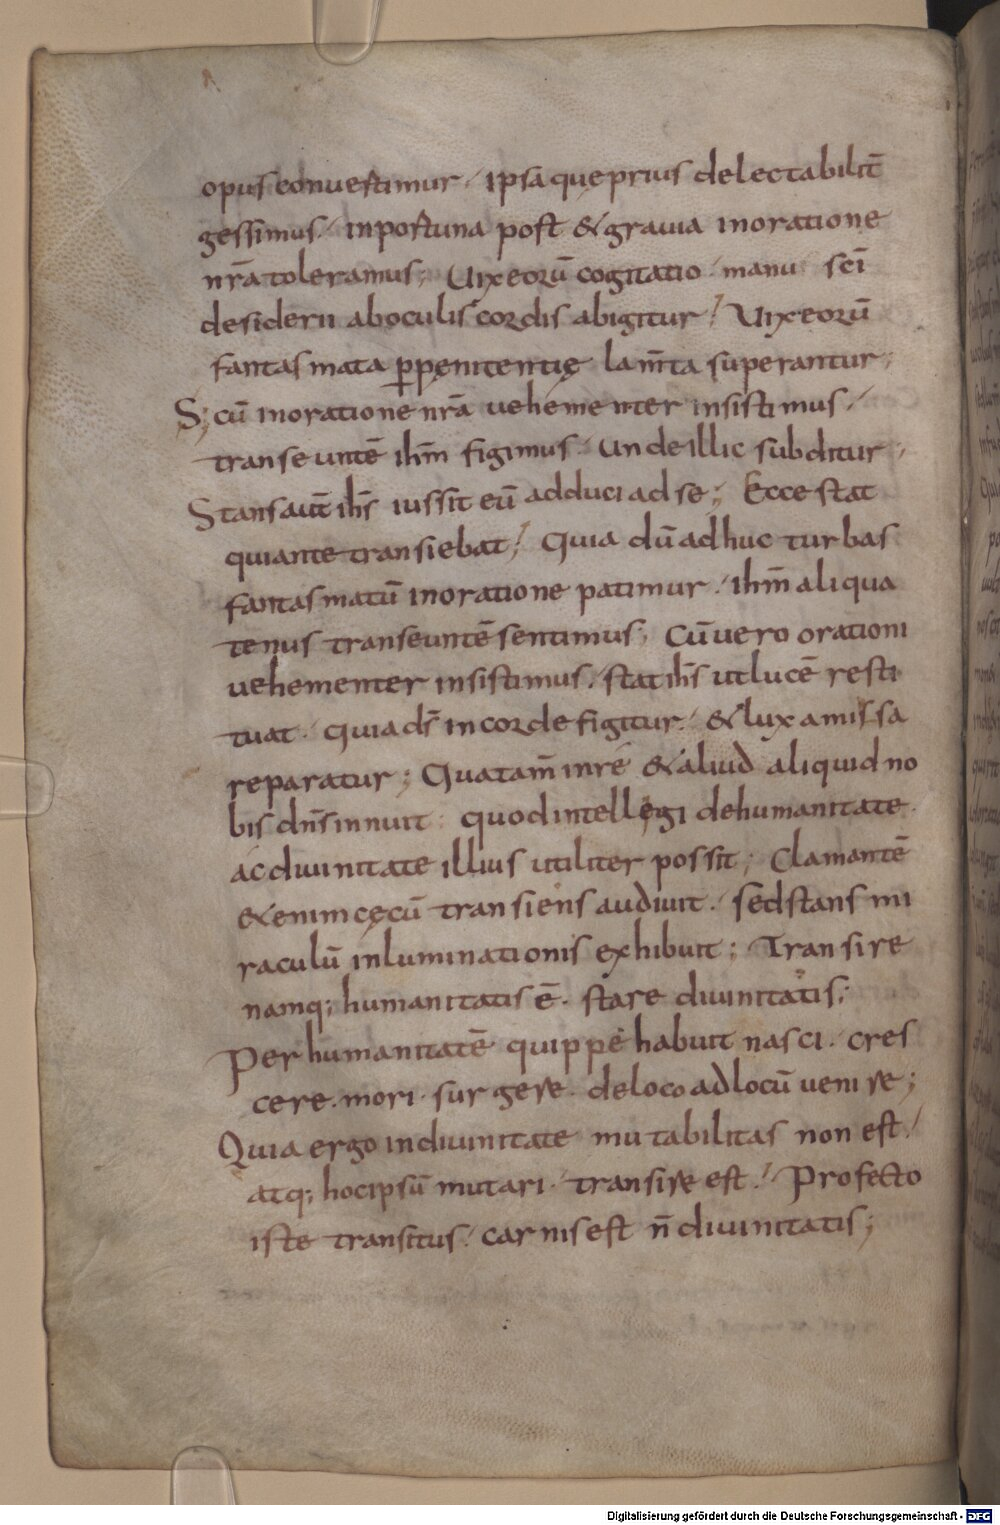 opus conuertimur. ipsa que prius delectabilit̄
gessimus. inportuna post & grauia inoratione
nr̄a toleramus; Uix eorū cogitatio manu sc̄i
desiderii aboculis cordis abigitur. Uix eorū
fantasmata ꝑ pęnitentię lam̄ta superantur;
S; cū inoratione nr̄a uehementer insistimus.
transeuntē ih̄m figimus. Unde illic subditur.
Stans aut̄ ih̄s iussit eū adduci adse; Ecce stat
qui ante transiebat; Quia dū adhuc turbas
fantasmatū inoratione patimur. ih̄m aliqua
tenus transeuntē sentimus; Cū uero orationi
uehementer insistimus. stat ih̄s ut lucē resti
tuat. quia ds̄ in corde figitur. & lux amissa
reparatur; Qua tam̄ inre & aliud aliquid no
bis dn̄s innuit. quod intellegi de humanitate.
ac diuinitate illius utiliter possit; Clamantē
& enim cęcū transiens audiuit. sed stans mi
raculū inluminationis exhibuit; Transire
namq; humanitatis ē. stare diuinitatis;
Per humanitatē quippe habuit nasci. cres
cere. mori. surgere. de loco ad locū uenire;
Quia ergo indiuinitate mutabilitas non est.
atq; hoc ipsū mutari. transire est. Profecto
iste transitus. carnis est n̄ diuinitatis;
Digitalisierung gefördert durch die Deutsche Forschungsgemeinschaft - DFG